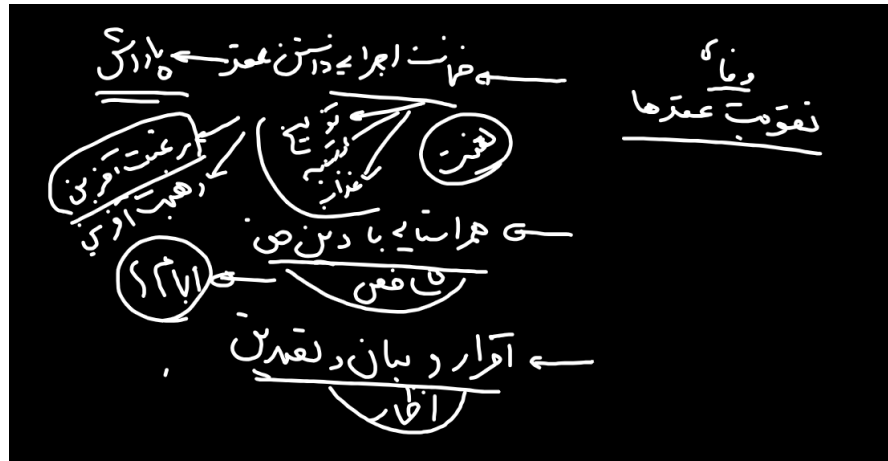 وفاء
تقویت عقدها
ضمانت اجرایی داشتن عقد ← پاداش
توبیخ
عذاب
لعنت
رغبت آفرین
رهبت آفرین
هم راستایی با دین حق
ناقص
ابهام؟
اقرار و بیان و تصدیق
اظهار